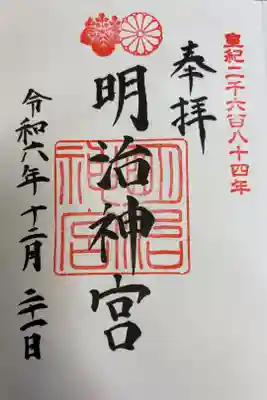 皇紀二千六百八十四年
奉拝
明治神宮
明治神宮
令和六年十二月二十一日